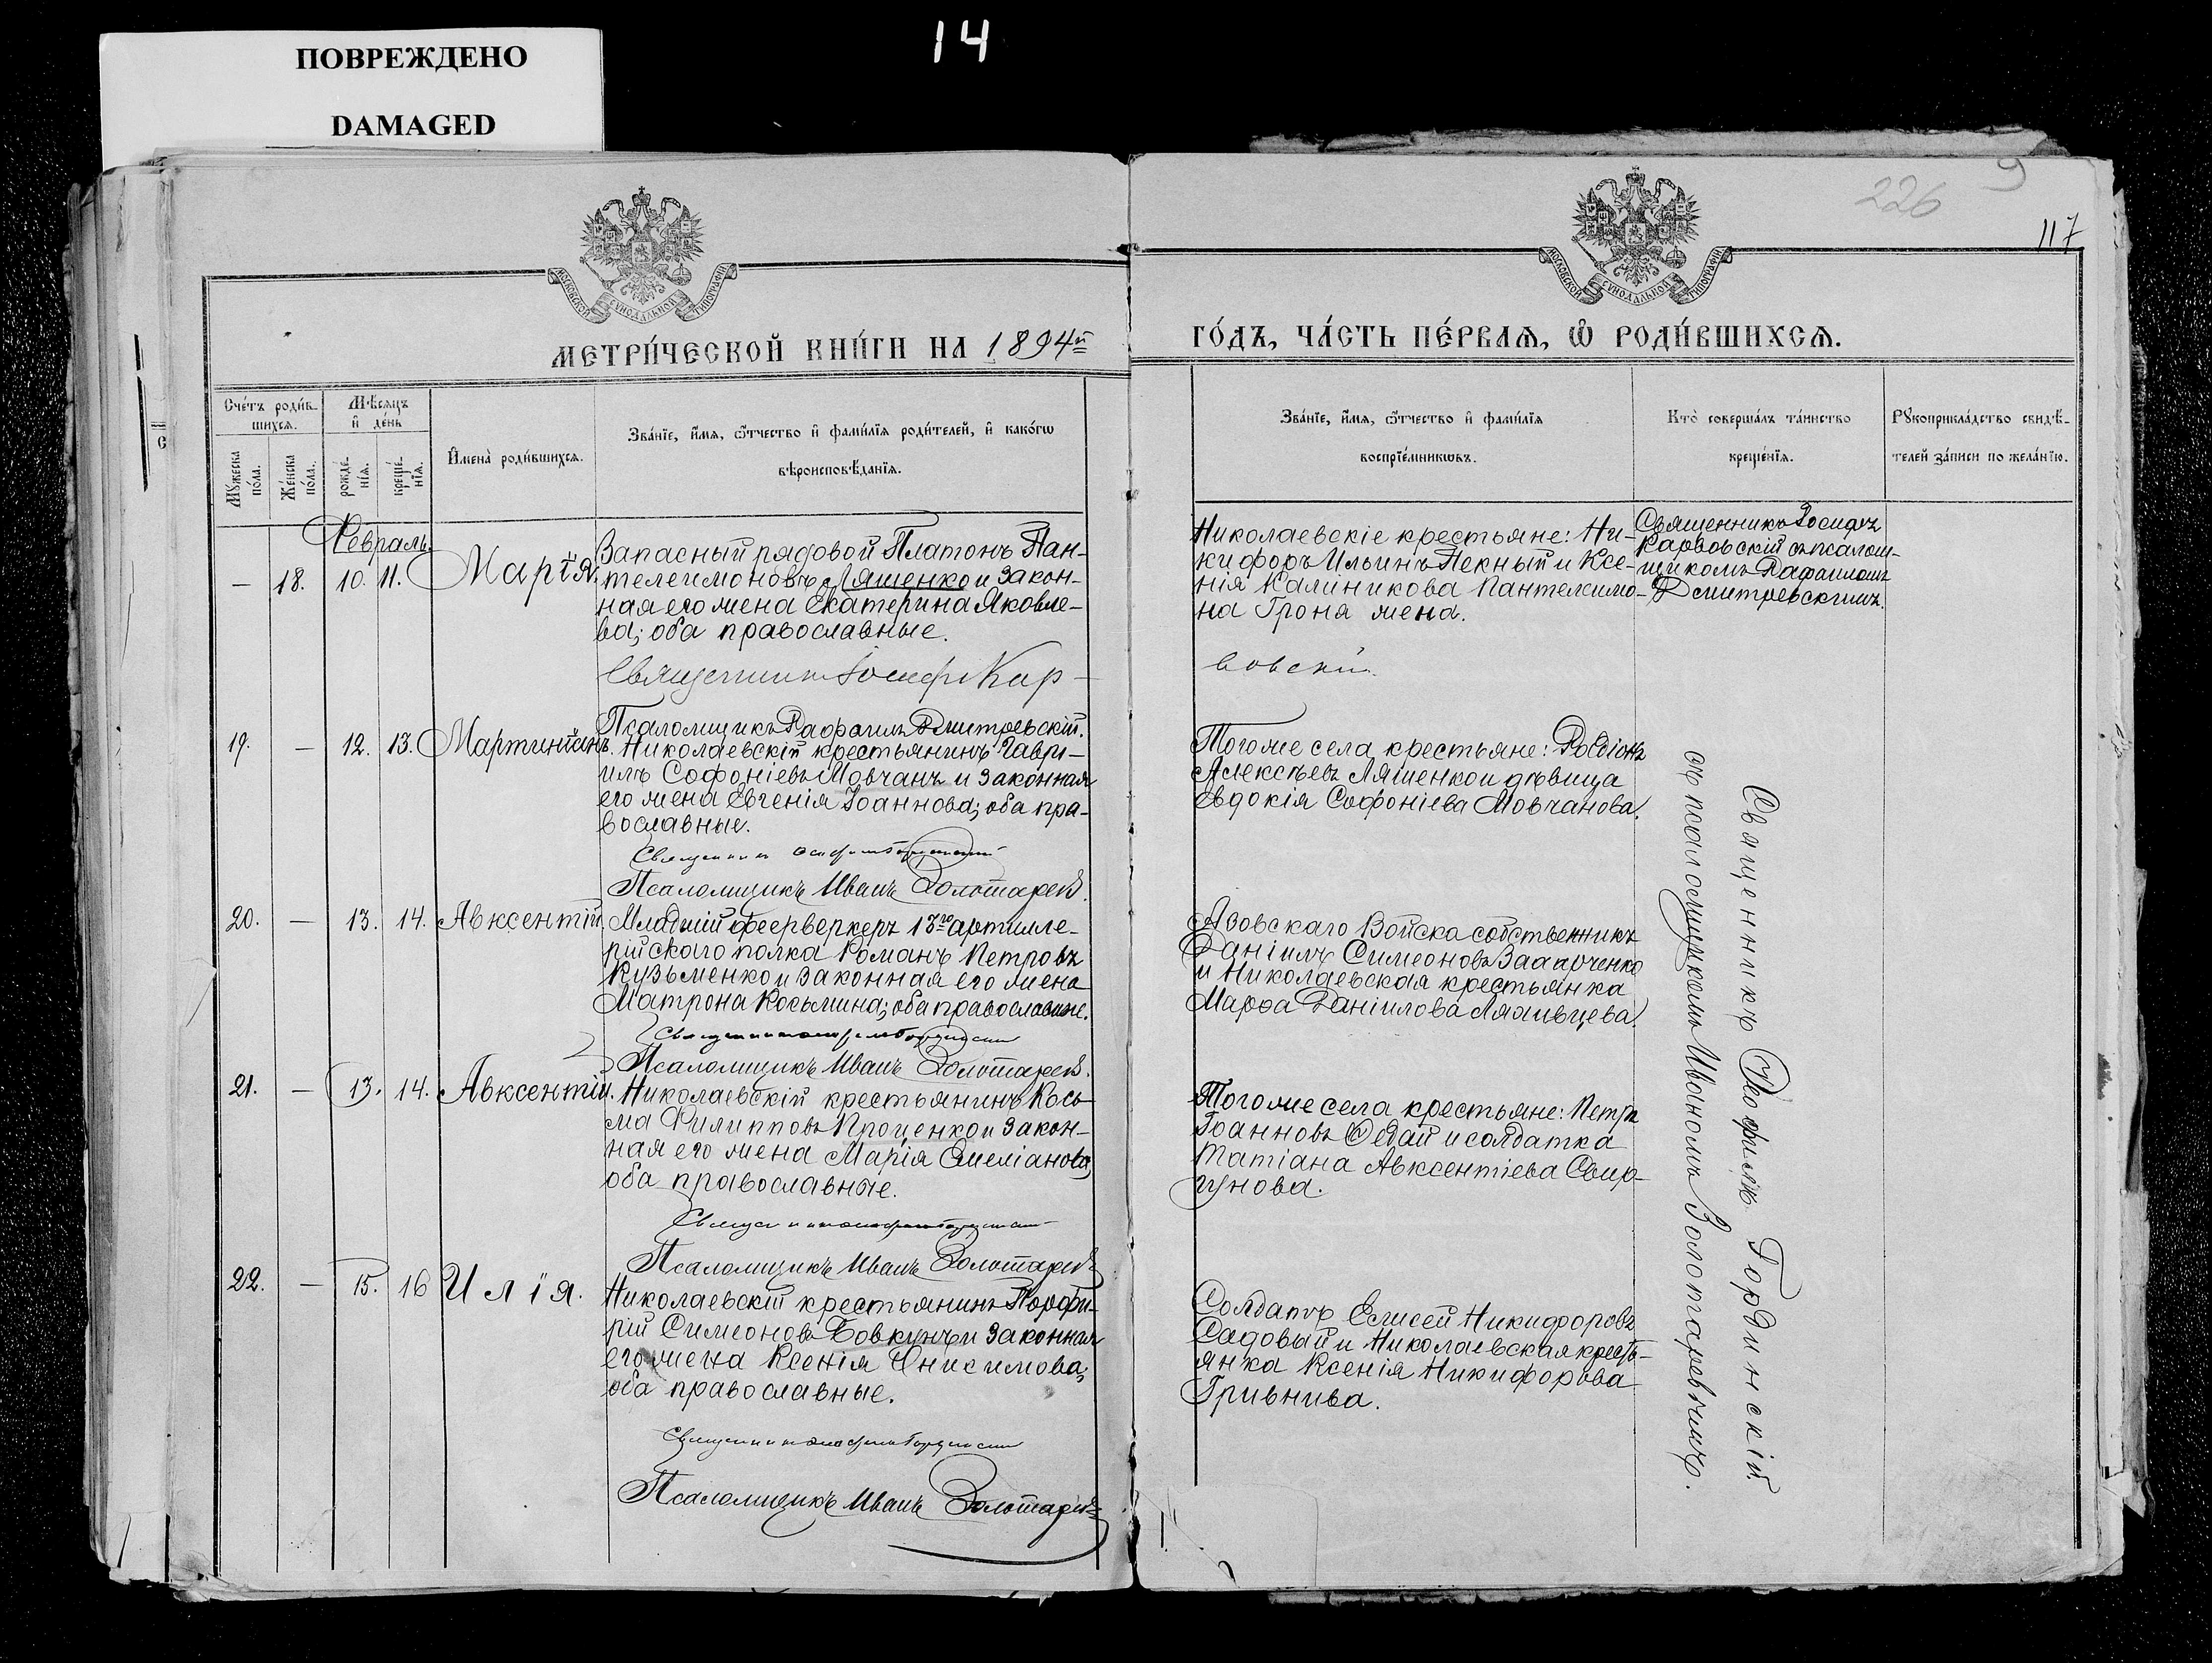 ПОВРЕЖДЕНО
DAMAGED
14
226
9
117
МОСКОВСКОЙ СУНОДАЛЬНОЙ ТИПОГРАФІИ
МОСКОВСКОЙ СУНОДАЛЬНОЙ ТИПОГРАФІИ
МЕТРИ́ЧЕСКОЙ КНИ́ГИ НА 1894й
ГО́ДЪ, ЧА́СТЬ ПЕ́РВАѦ, Ѽ РОДИ́ВШИХСѦ.
Сче́тъ роди́в-
шихсѧ.
Мѣ́сѧцъ
и҆ де́нь
Мꙋ́жеска
по́ла.
Же́нска
по́ла.
рожде́-
нїѧ.
креще́-
нїѧ.
И҆мена̀ роди́вшихсѧ.
Зва́нїе, и҆́мѧ, ѻ҆́тчество и҆ фами́лїѧ роди́телей, и҆ како́гѡ
вѣроисповѣ́данїѧ.
Зва́нїе, и҆́мѧ, ѻ҆́тчество и҆ фами́лїѧ
воспрїе́мникѡвъ.
Кто̀ соверша́лъ та́инство
креще́нїѧ.
Рꙋкоприкла́дство свидѣ́-
телей за́писи по жела́нїю.
Февраль.
— 18. 10. 11. Марія.
Запасный рядовой Платонъ Пан-
телеимоновъ Ляшенко и закон-
ная его жена Екатерина Яковле-
ва; оба православные.
Священникъ Іосифъ Кар-
Псаломщикъ Рафаилъ Дмитревскій.
Николаевскіе крестьяне: Ни-
кифоръ Ильинъ Пекный и Ксе-
нія Калиникова Пантелеимо-
на Гроня жена.
вовскій.
Священникъ Іосифъ
Карвовскій съ псалом-
щикомъ Рафаиломъ
Дмитревскимъ.
19. — 12. 13. Мартиніанъ.
Николаевскій крестьянинъ Гаври-
илъ Софоніевъ Мовчанъ и законная
его жена Евгенія Іоаннова; оба пра-
вославные.
Священникъ
Псаломщикъ Иванъ Золотарев
Тогоже села крестьяне: Родіонъ
Алексѣевъ Ляшенко и дѣвица
Евдокія Софоніева Мовчанова.
20. — 13. 14. Авксентій.
Младшій феерверкеръ 13го артилле-
рійскаго полка Романъ Петровъ
Кузьменко и законная его жена
Матрона Косьмина; оба православные.
Псаломщикъ Иванъ Золотарев.
Азовскаго Войска собственникъ
Даніилъ Симеоновъ
и Николаевская крестьянка
Марѳа Даніилова
21. — 13. 14. Авксентій.
Николаевскій крестьянинъ Кось-
ма Филипповъ Проценко и закон-
ная его жена Марія Емеліанова;
оба православные.
Псаломщикъ Иванъ Золотарев
Тогоже села крестьяне: Петръ
Іоанновъ и солдатка
Татіана Авксентіева Свир-
гунова.
22. — 15. 16 Илія.
Николаевскій крестьянинъ Порфи-
рій Симеоновъ Бовкунъ и законная
его жена Ксенія Онисимова;
оба православные.
Псаломщикъ Иванъ Золотарев
Солдатъ Елисей Никифоровъ
Садовый и Николаевская кресть-
янка Ксенія Никифорова
Гривнива.
Священникъ Ѳеофилъ Гординскій
съ псаломщикомъ Иваномъ Золотаревымъ.